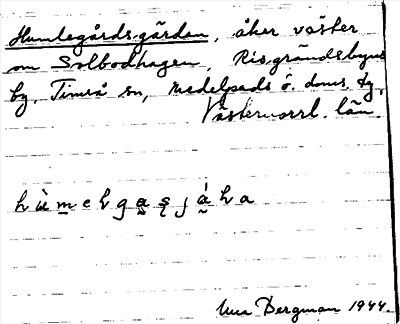 Humlegårdsgärdan, åker väster
om Solbodhagen, Risgrändsbyns
by, Timrå sn, Medelpads ö. doms. tg,
Västernorrl. län.
h ù m̱ e h g a̰ s̨ j á̰ h a
Una Bergman 1944.